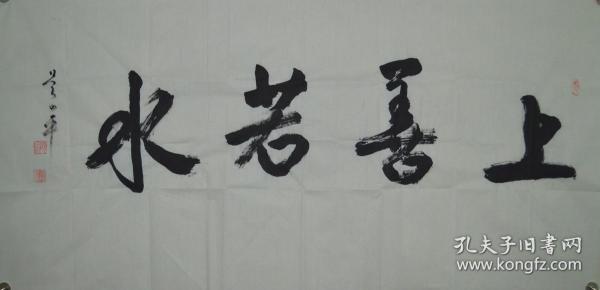 上善若水
孔夫子旧书网
www.kongfz.com